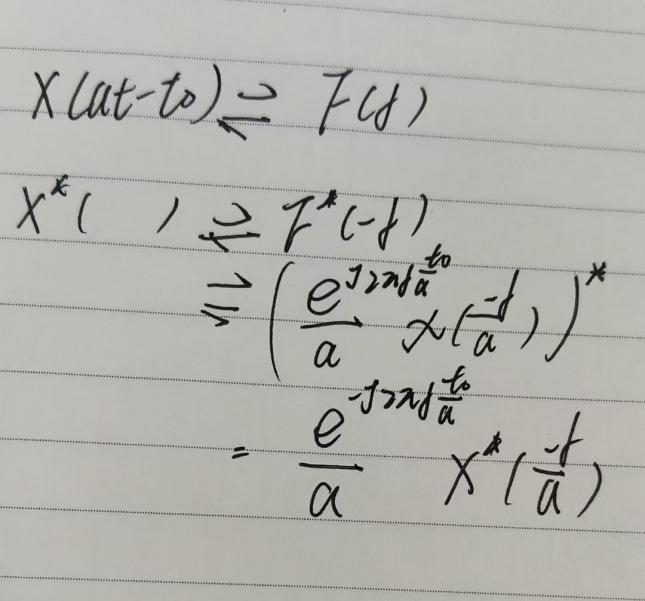 X(at-t₀) ⇌ F(f)
X*( ) ⇌ F*(-f)
⇌ (e^{j2πf t₀/a} / a X(-f/a))*
= e^{-j2πf t₀/a} / a X*(-f/a)